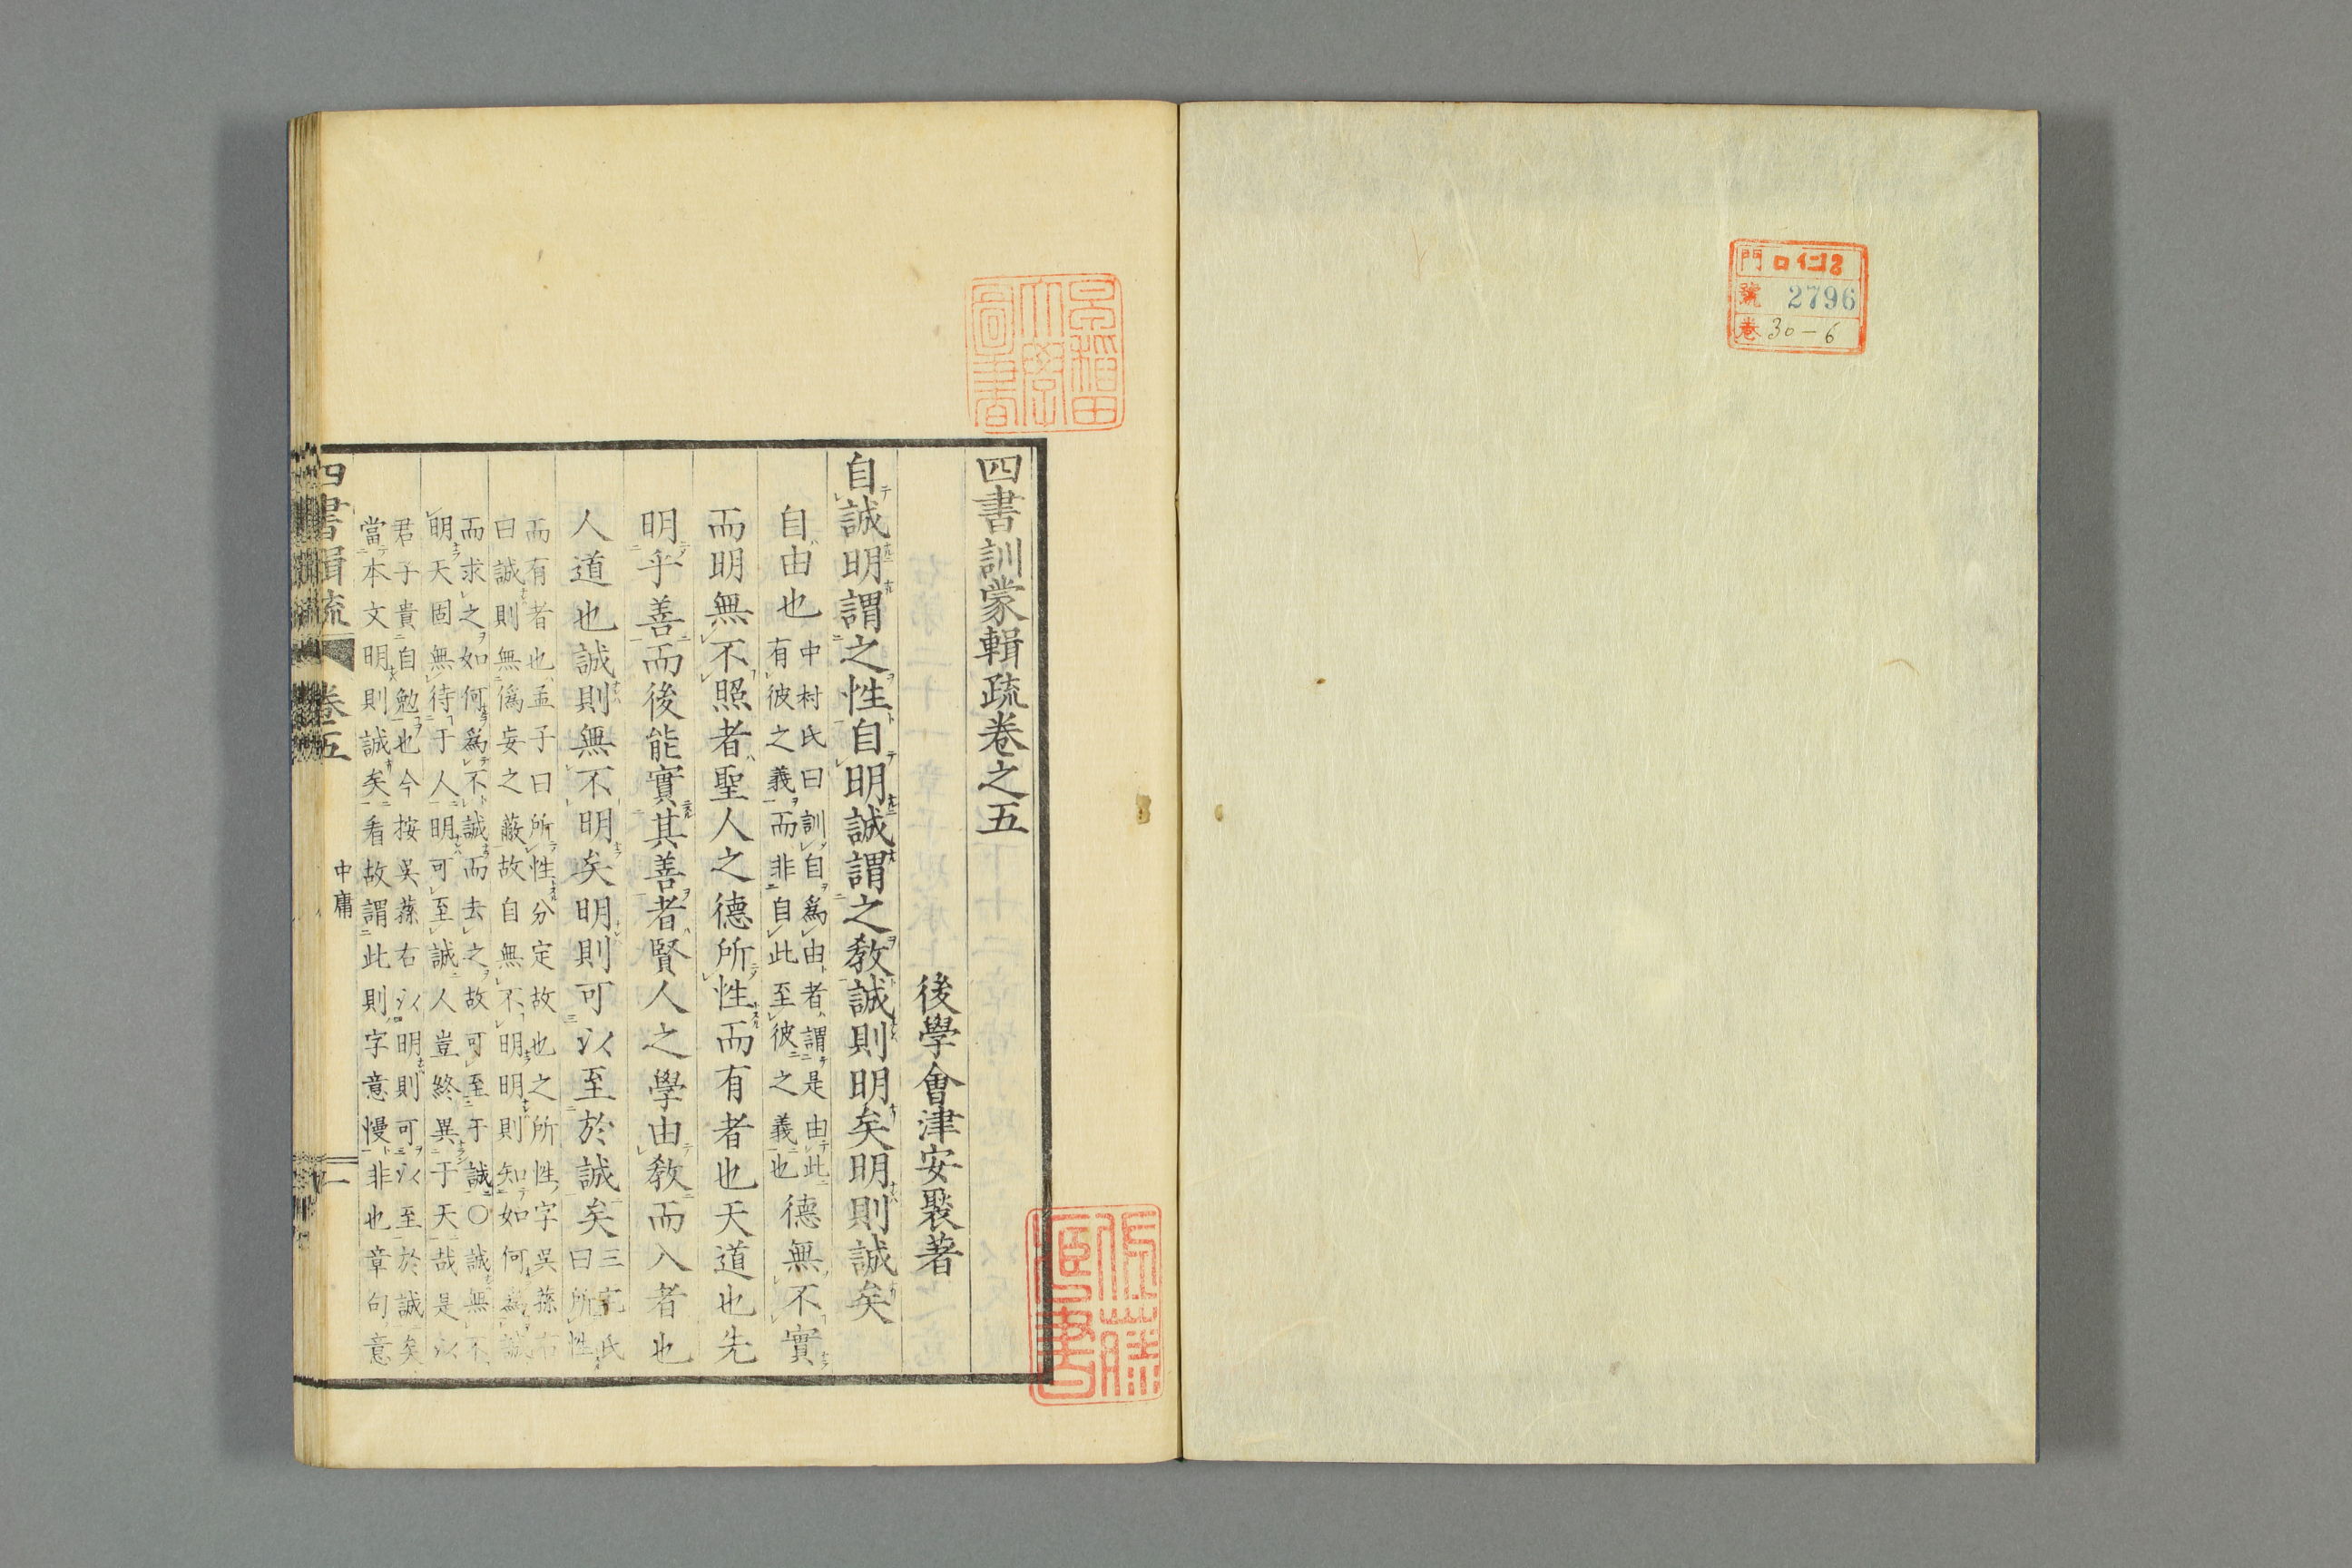 門 ロ仁13
號 2796
巻 30-6
早稲田大學圖書
四書訓蒙輯疏卷之五
後學會津安褧著
自誠明謂之性自明誠謂之敎誠則明矣明則誠矣
自由也
中村氏曰訓自爲由者謂是由此
有彼之義而非自此至彼之義也
德無不實
而明無不照者聖人之德所性而有者也天道也先
明乎善而後能實其善者賢人之學由敎而入者也
人道也誠則無不明矣明則可以至於誠矣
三宅氏
曰所性
而有者也孟子曰所性分定故也之所性字吳蓀右
曰誠則無僞妄之蔽故自無不明明則知如何爲誠
而求之如何爲不誠而去之故可至于誠〇誠無不
明天固無待于人明可至誠人豈終異于天哉是以
君子貴自勉也今按吳蓀右以明則可以至於誠矣
當本文明則誠矣看故謂此則字意慢非也章句意
四書輯疏 卷五
中庸
一
佐藤
書